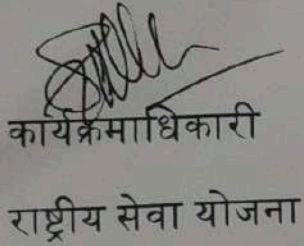 कार्यक्रमाधिकारी
राष्ट्रीय सेवा योजना